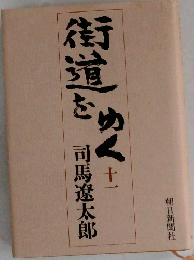 街道を
ゆく
十一
司馬遼太郎
朝日新聞社